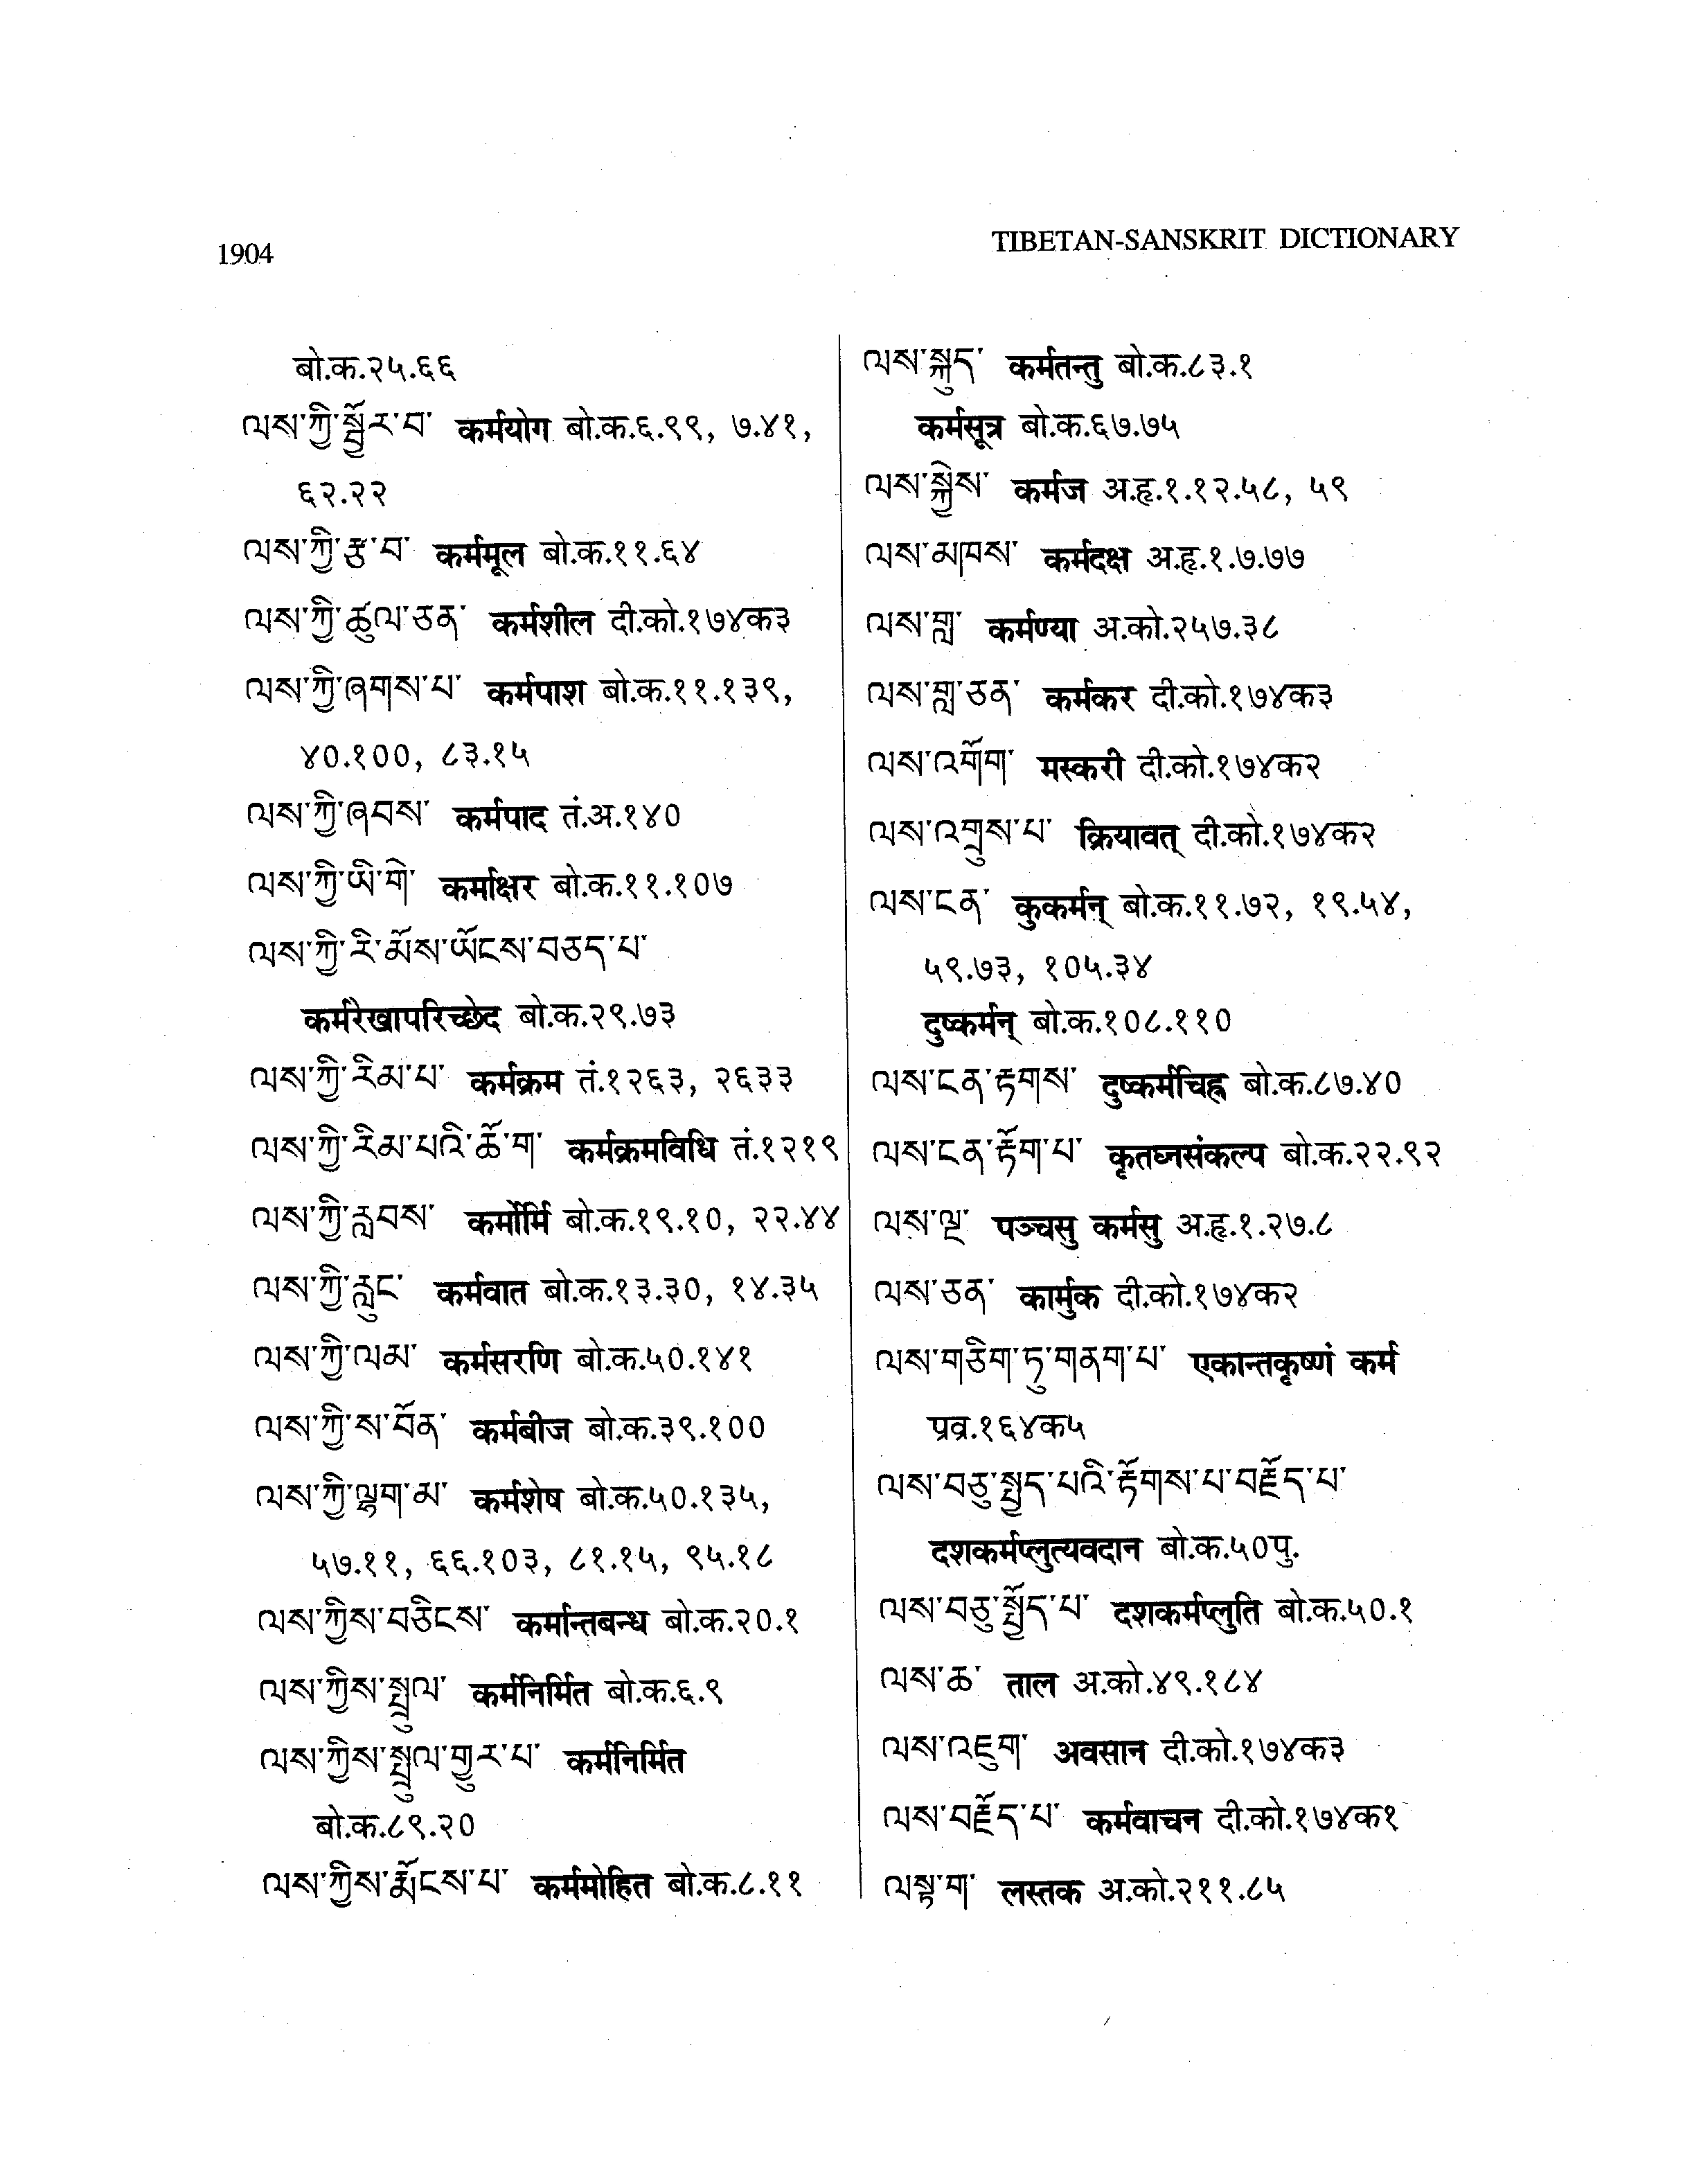 1904
TIBETAN-SANSKRIT DICTIONARY
बो.क.२५.६६
ལས་ཀྱི་སྦྱོར་བ་ कर्मयोग बो.क.६.९९, ७.४१,
६२.२२
ལས་ཀྱི་རྩ་བ་ कर्ममूल बो.क.११.६४
ལས་ཀྱི་ཚུལ་ཅན་ कर्मशील दी.को.१७४क३
ལས་ཀྱི་ཞགས་པ་ कर्मपाश बो.क.११.१३९,
४०.१००, ८३.१५
ལས་ཀྱི་ཞབས་ कर्मपाद तं.अ.१४०
ལས་ཀྱི་ཡི་གེ་ कर्माक्षर बो.क.११.१०७
ལས་ཀྱི་རི་མོས་ཡོངས་བཅད་པ་
कर्मरेखापरिच्छेद बो.क.२९.७३
ལས་ཀྱི་རིམ་པ་ कर्मक्रम तं.१२६३, २६३३
ལས་ཀྱི་རིམ་པའི་ཆོ་ག་ कर्मक्रमविधि तं.१२१९
ལས་ཀྱི་རླབས་ कर्मोर्मि बो.क.१९.१०, २२.४४
ལས་ཀྱི་རླུང་ कर्मवात बो.क.१३.३०, १४.३५
ལས་ཀྱི་ལམ་ कर्मसरणि बो.क.५०.१४१
ལས་ཀྱི་ས་བོན་ कर्मबीज बो.क.३९.१००
ལས་ཀྱི་ལྷག་མ་ कर्मशेष बो.क.५०.१३५,
५७.११, ६६.१०३, ८१.१५, ९५.१८
ལས་ཀྱིས་བཅིངས་ कर्मान्तबन्ध बो.क.२०.१
ལས་ཀྱིས་སྤྲུལ་ कर्मनिर्मित बो.क.६.९
ལས་ཀྱིས་སྤྲུལ་གྱུར་པ་ कर्मनिर्मित
बो.क.८९.२०
ལས་ཀྱིས་རྨོངས་པ་ कर्ममोहित बो.क.८.११
ལས་སྐུད་ कर्मतन्तु बो.क.८३.१
कर्मसूत्र बो.क.६७.७५
ལས་སྐྱེས་ कर्मज अ.हृ.१.१२.५८, ५९
ལས་མཁས་ कर्मदक्ष अ.हृ.१.७.७७
ལས་གླ་ कर्मण्या अ.को.२५७.३८
ལས་གླ་ཅན་ कर्मकर दी.को.१७४क३
ལས་འགོག་ मस्करी दी.को.१७४क२
ལས་འགྲུས་པ་ क्रियावत् दी.को.१७४क२
ལས་ངན་ कुकर्मन् बो.क.११.७२, १९.५४,
५९.७३, १०५.३४
दुष्कर्मन् बो.क.१०८.११०
ལས་ངན་རྟགས་ दुष्कर्मचिह्न बो.क.८७.४०
ལས་ངན་རྟོག་པ་ कृतघ्नसंकल्प बो.क.२२.९२
ལས་ལྔ་ पञ्चसु कर्मसु अ.हृ.१.२७.८
ལས་ཅན་ कार्मुक दी.को.१७४क२
ལས་གཅིག་ཏུ་གནག་པ་ एकान्तकृष्णं कर्म
प्रव्र.१६४क५
ལས་བཅུ་སྤྱད་པའི་རྟོགས་པ་བརྗོད་པ་
दशकर्मप्लुत्यवदान बो.क.५०पु.
ལས་བཅུ་སྤྱོད་པ་ दशकर्मप्लुति बो.क.५०.१
ལས་ཆ་ ताल अ.को.४९.१८४
ལས་འཇུག་ अवसान दी.को.१७४क३
ལས་བརྗོད་པ་ कर्मवाचन दी.को.१७४क१
ལསྟ་ག་ लस्तक अ.को.२११.८५